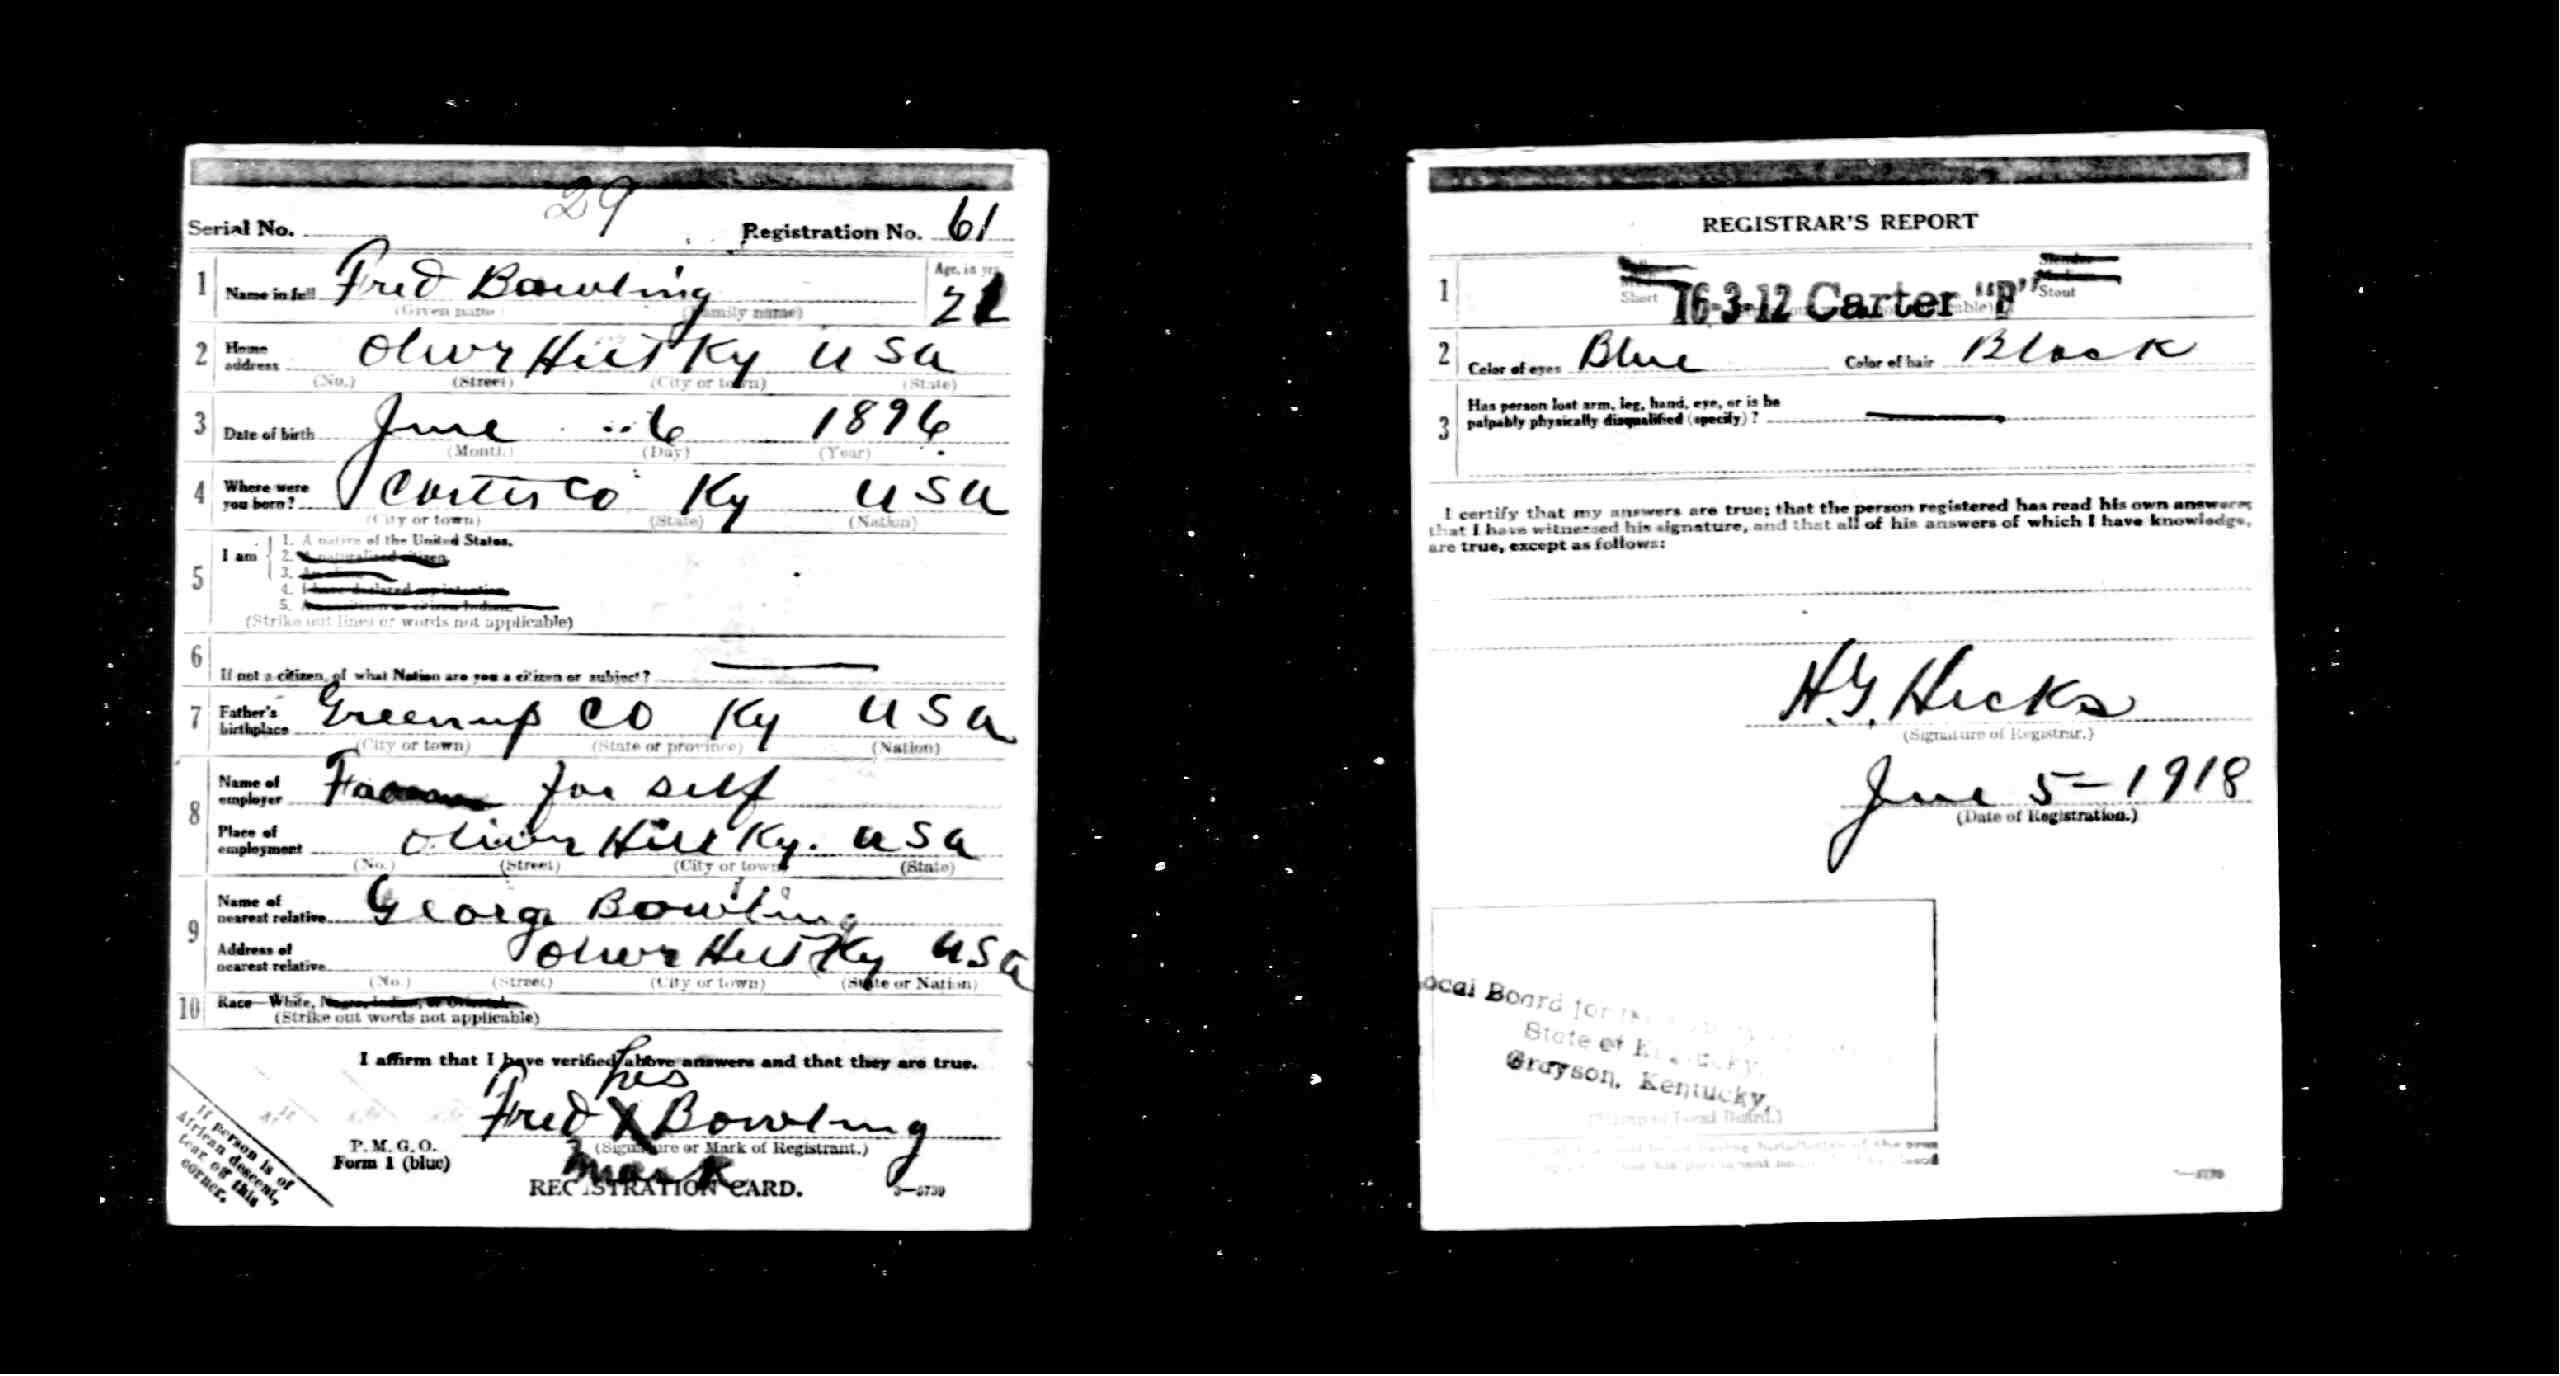 29
Serial No. Registration No. 61
1 Name in full Fred Bowling Age, in yrs. 21
(Given name) (Family name)
2 Home address Olive Hill Ky USA
(No.) (Street) (City or town) (State)
3 Date of birth June 6 1896
(Month.) (Day) (Year)
4 Where were you born? Carter Co Ky USA
(City or town) (State) (Nation)
5 I am
1. A native of the United States.
2. A naturalized citizen.
3. An alien
4. I have declared my intention
5. A noncitizen or citizen Indian.
(Strike out lines or words not applicable)
6 If not a citizen, of what Nation are you a citizen or subject?
7 Father's birthplace Greenup Co Ky USA
(City or town) (State or province) (Nation)
8 Name of employer for self
Place of employment Olive Hill Ky. USA
(No.) (Street) (City or town) (State)
9 Name of nearest relative George Bowling
Address of nearest relative Olive Hill Ky USA
(No.) (Street) (City or town) (State or Nation)
10 Race—White, Negro, Indian, or Oriental.
(Strike out words not applicable)
I affirm that I have verified above answers and that they are true.
his
Fred X Bowling
(Signature or Mark of Registrant.)
mark
P. M. G. O.
Form 1 (blue)
REGISTRATION CARD. 3—5739
If person is of
African descent,
tear off this
corner.
REGISTRAR'S REPORT
1 Short Slender Medium Stout
16-3-12 Carter "B"
2 Color of eyes Blue Color of hair Black
3 Has person lost arm, leg, hand, eye, or is he
palpably physically disqualified (specify)?
I certify that my answers are true; that the person registered has read his own answers;
that I have witnessed his signature, and that all of his answers of which I have knowledge,
are true, except as follows:
H.G. Hicks
(Signature of Registrar.)
June 5-1918
(Date of Registration.)
Local Board for
State of Kentucky,
Grayson, Kentucky,
(Stamp of Local Board.)